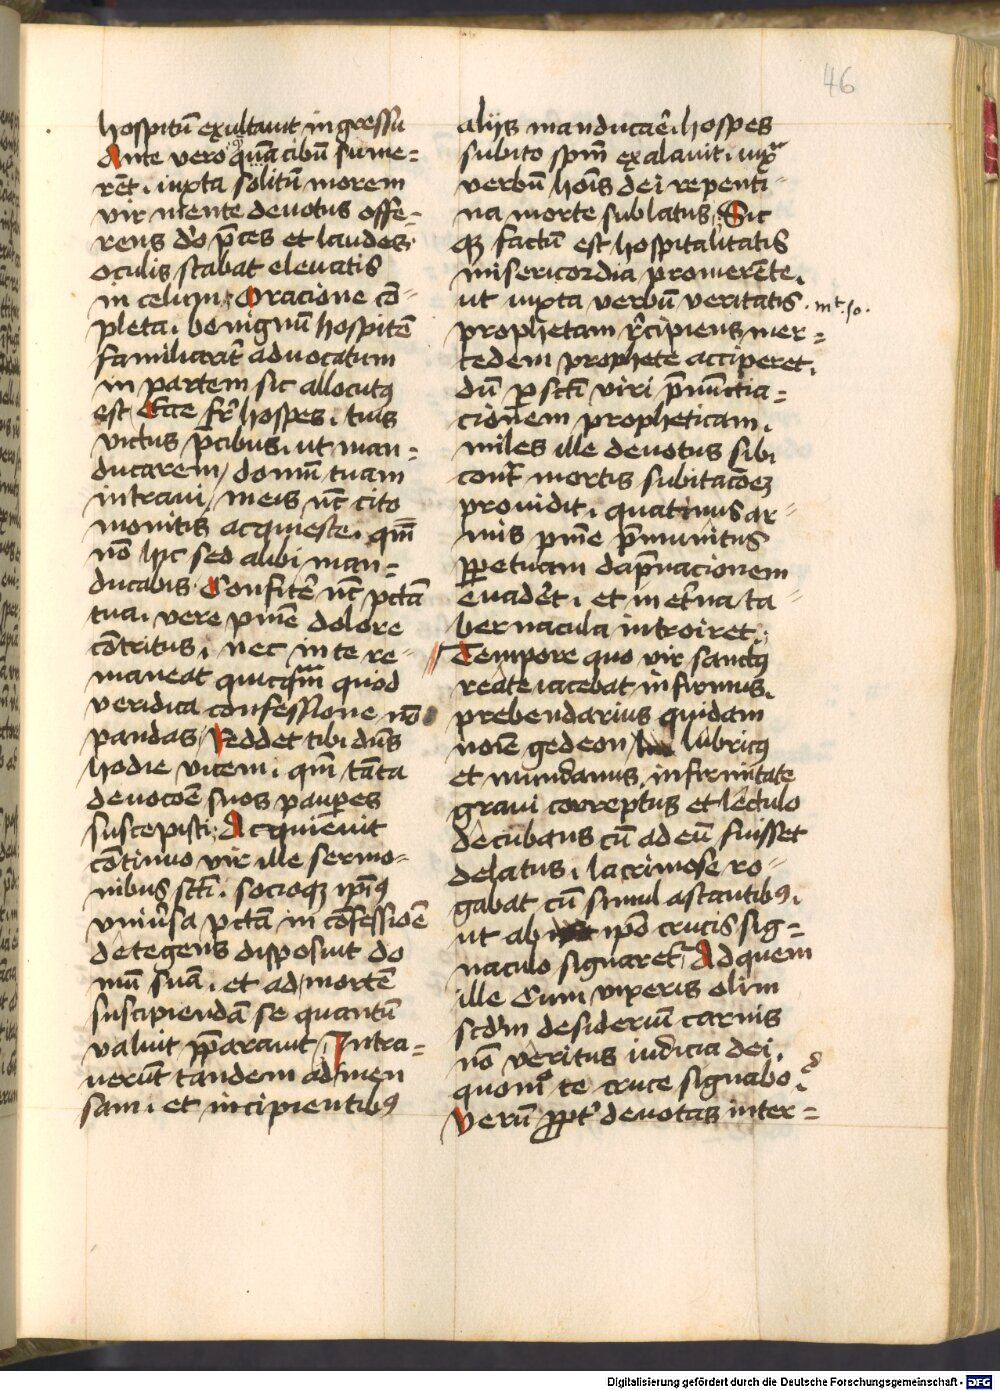 46
hospitũ exultauit ingressu
Ante vero quã cibũ sume=
rẽt. iuxta solitũ morem
vir mente deuotus offe=
rens deo p̃ces et laudes.
oculis stabat eleuatis
in celum; Oracione cõ-
pleta. benignũ hospitẽ
familiarit̾ aduocatum
in partem sic allocutꝯ
est Ecce fr̃ hospes. tuis
victus p̃cibus. ut man=
ducarem / domũ tuam
intraui / meis nũc cito
monitis acquiesce. qm̃
nõ hic sed alibi man=
ducabis. Confiter̾ nũc pctã
tua. vere pnĩe dolore
cõtritus. nec in te re-
maneat quicq̃m quod
veridica confessione nõ
pandas / Reddet tibi dñs
hodie vicem. qm̃ tãta
deuocõe suos paup̱es
suscepisti; Acquieuit
cõtinuo vir ille sermo-
nibus sctĩ. socioqꝫ ip̃iꝯ
vniũsa pctã in cõfessiõe
detegens disposuit do
mũ suã. et ad mortẽ
suscipiendã se quantũ
valuit p̱parauit; Intra=
uerũt tandem ad men
sam. et incipientibꝯ
alijs manducar̾e. hospes
subito sp̃m exalauit. iuxᵃ
verbũ hoĩs dei repenti-
na morte sublatus; Sic
qꝫ factũ est hospitalitatis
misericordia promerẽte.
ut iuxta verbũ veritatis
. mt̾. 10.
prophetam r̾cipiens mer=
cedem prophete acciperet.
dũ p̱ sctĩ viri p̃nũctia=
cionem propheticam.
miles ille deuotus sibi
contᵃ mortis subitacõeꝫ
prouidit. quatinus ar-
mis pnĩe p̃munitus
p̱petuam dãpnacionem
euader̾t. et in et̾na ta-
bernacula introiret.;
Tempore quo vir sanctꝯ
reate iacebat infirmus.
prebendarius quidam
noĩe gedeon lubricꝯ
et mundanus. infirmitate
graui correptus et lectulo
decubans cũ ad eũ fuisset
delatus. lacrimose ro-
gabat cũ simul astantibꝯ.
ut ab ip̃o crucis sig=
naculo signaret̾ Ad quem
ille Cum viẋeris olim
scdm̃ desideriũ carnis
nõ veritus iudicia dei.
quomº te cruce signabo?
Verũ p̱pt̾ deuotas inter=
Digitalisierung gefördert durch die Deutsche Forschungsgemeinschaft - DFG